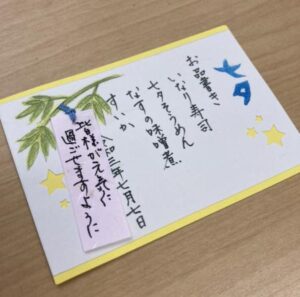 七夕
お品書き
いなり寿司
七夕そうめん
なすの味噌煮
すいか
令和三年七月七日
皆様が元気に
過ごせますように